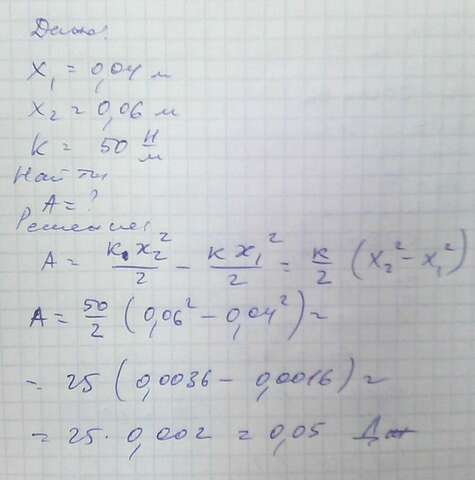 Дано:
x₁ = 0,04 м
x₂ = 0,06 м
k = 50 Н/м
Найти
A = ?
Решение:
A = k·x₂²/2 − kx₁²/2 = k/2 (x₂² − x₁²)
A = 50/2 (0,06² − 0,04²) =
= 25 (0,0036 − 0,0016) =
= 25 · 0,002 = 0,05 Дж